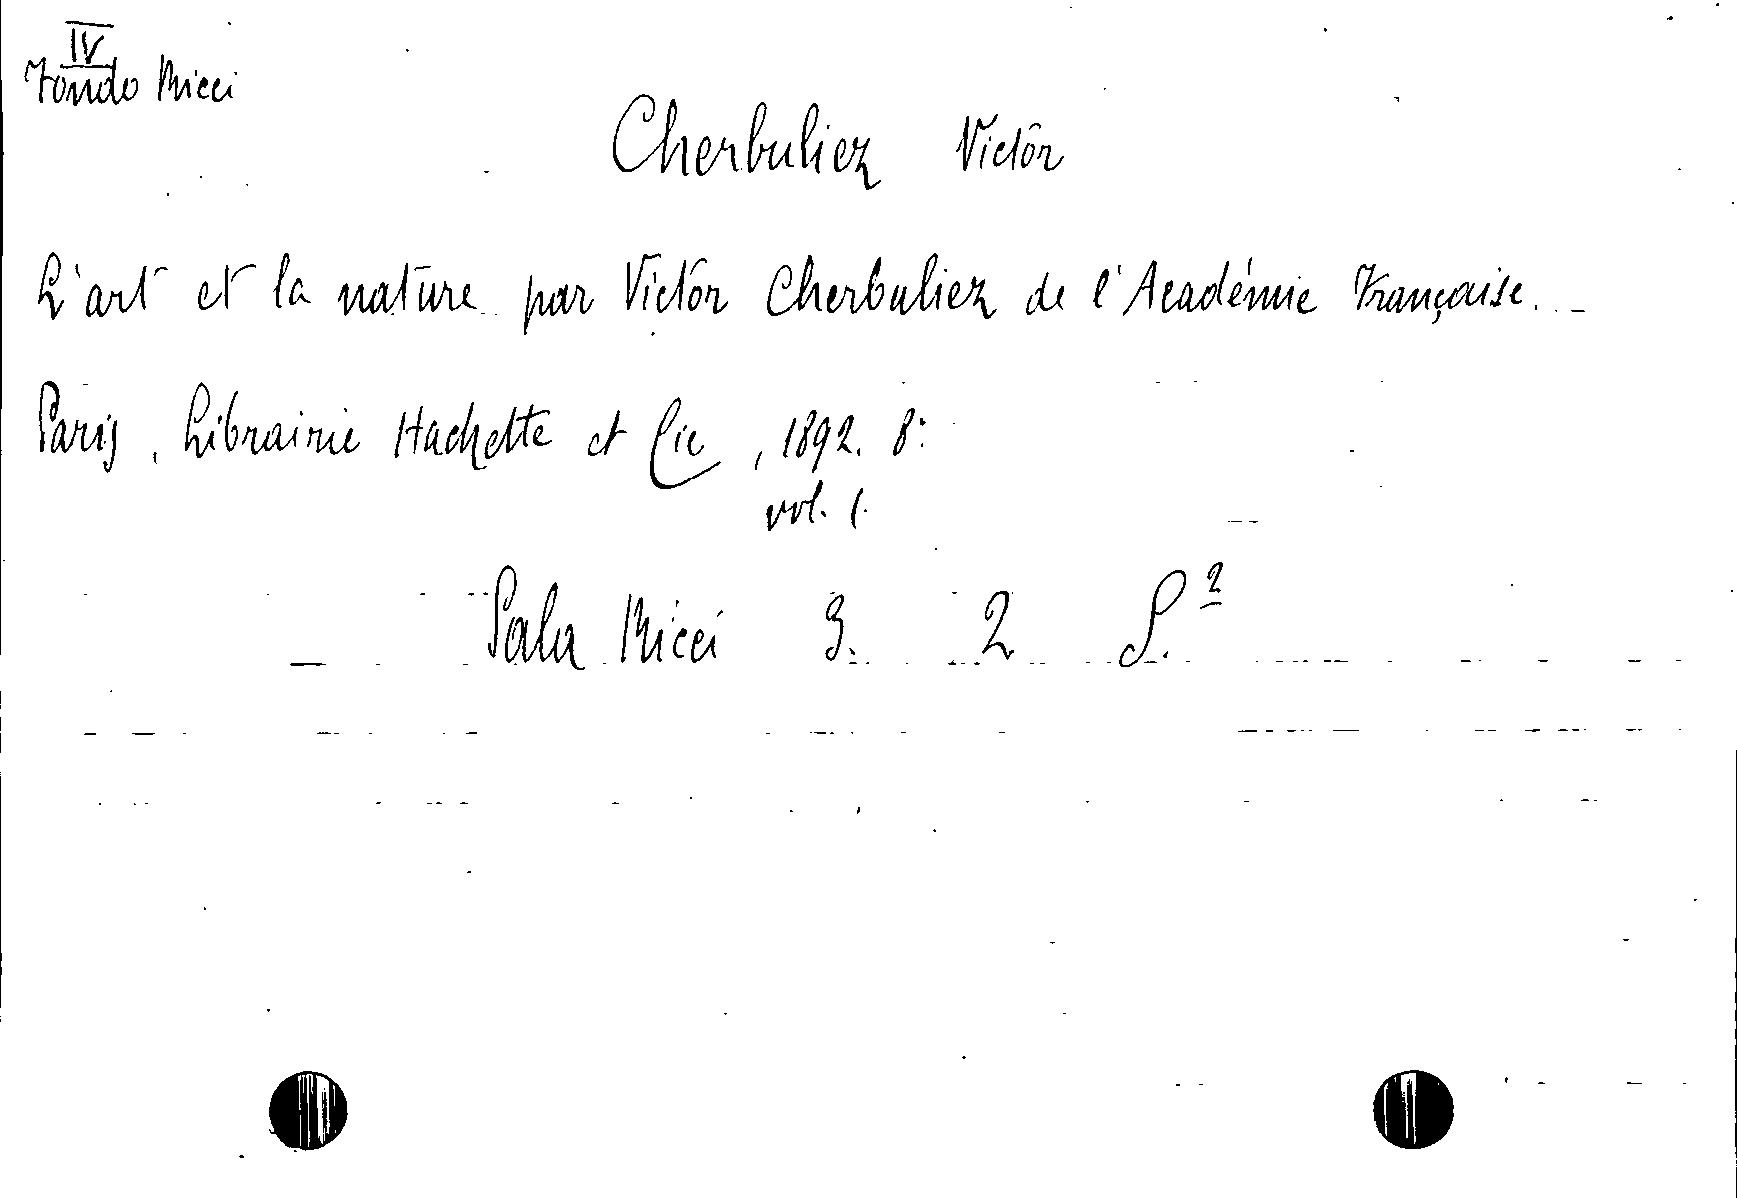 IV
Fondo Ricci
Cherbuliez Victor
L'art et la nature par Victor Cherbuliez de l'Académie Française. _
Paris, Librairie Hachette et Cie, 1892. 8:
vol. 1.
Sala Ricci 3. 2 S.2